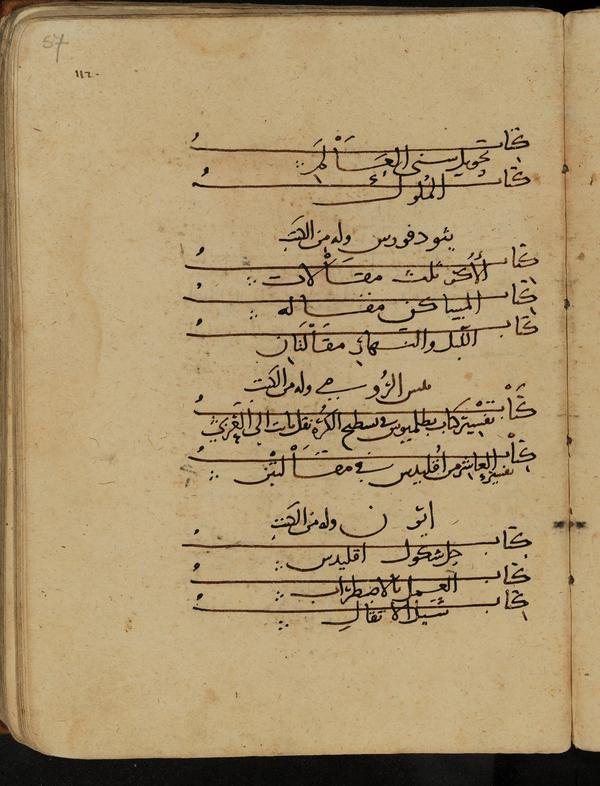 57
١١٦٠
كتاب
تحويل سنى العالم
كتاب
الملوك
ثيودفورس وله من الكتب
كتاب
الأكر ثلث مقالات
كتاب
المساكن مقاله
كتاب
الليل والنهار مقالتان
بلس الرومي وله من الكتب
كتاب
تفسير كتاب بطلميوس في تسطيح الكرة نقل ثابت الى العربي
كتاب
تفسير العاشر من اقليدس في مقالتين
ايرن وله من الكتب
كتاب
حل شكوك اقليدس
كتاب
العمل بالاصطرلاب
كتاب
شيل الاثقال